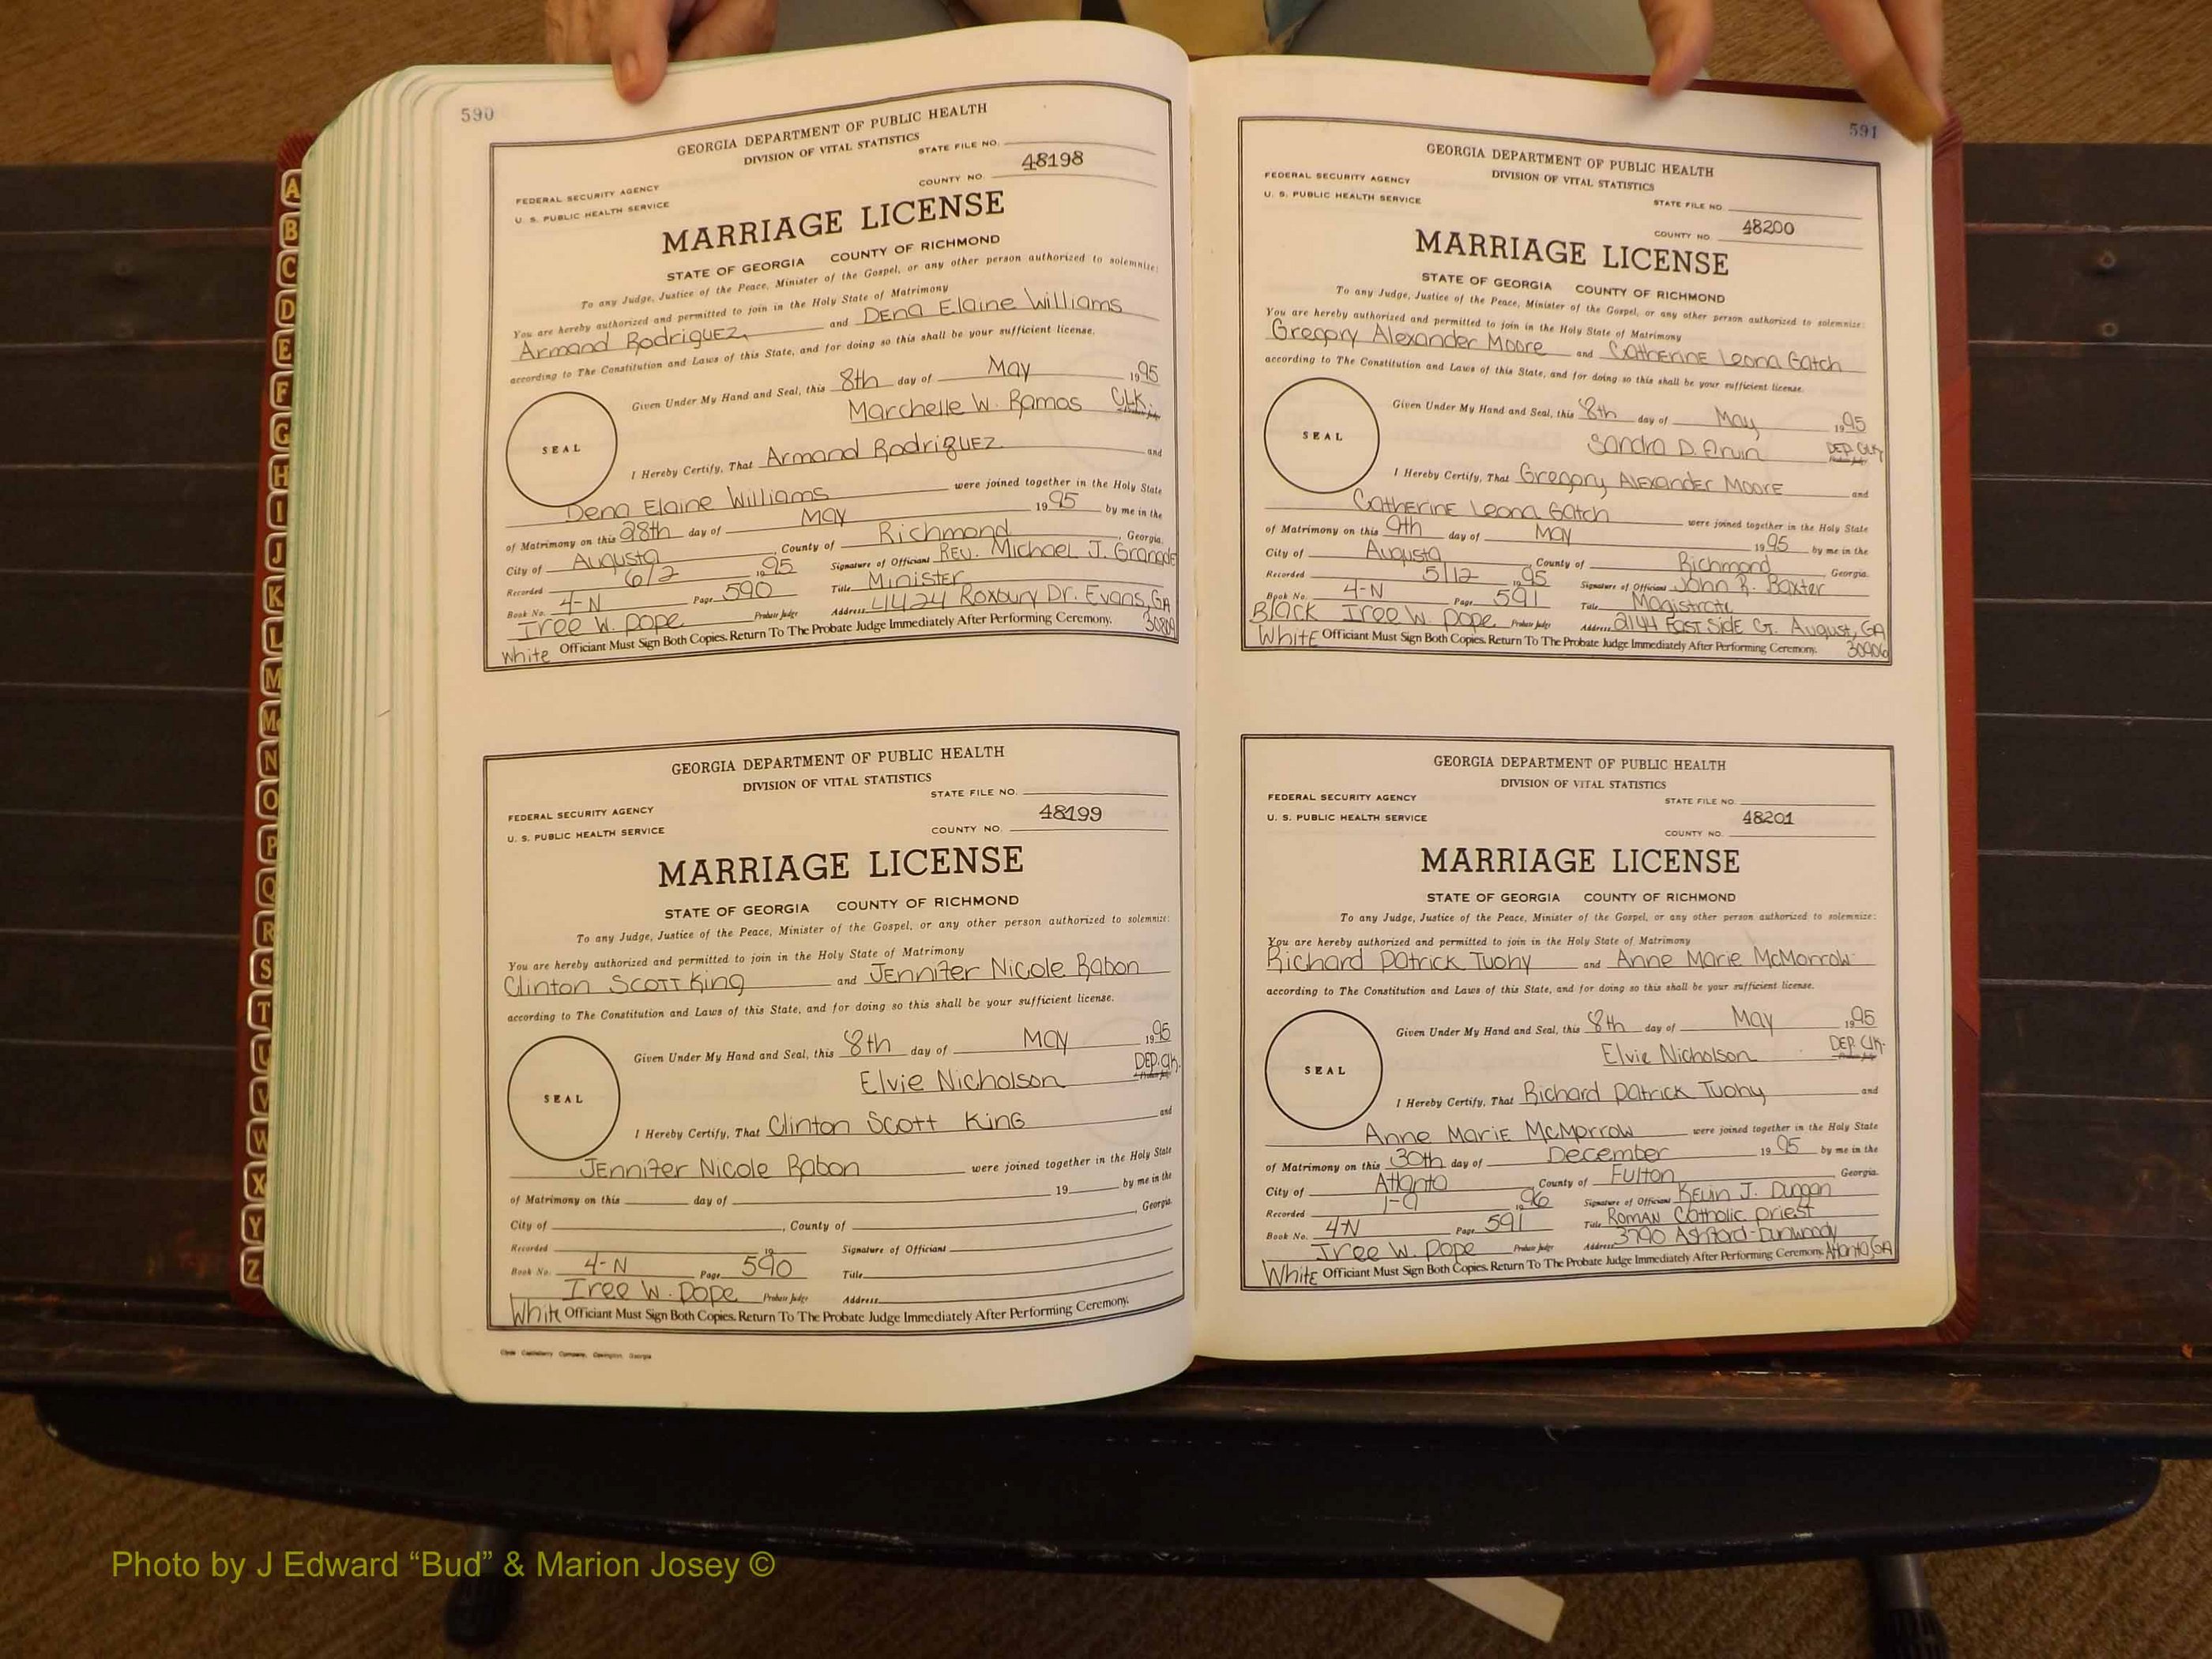 A
B
C
D
E
F
G
H
I
J
K
L
M
Mc
N
O
P
Q
R
S
T
U
V
W
X
Y
Z
590
GEORGIA DEPARTMENT OF PUBLIC HEALTH
DIVISION OF VITAL STATISTICS
STATE FILE NO.
48198
FEDERAL SECURITY AGENCY
COUNTY NO.
U. S. PUBLIC HEALTH SERVICE
MARRIAGE LICENSE
STATE OF GEORGIA COUNTY OF RICHMOND
To any Judge, Justice of the Peace, Minister of the Gospel, or any other person authorized to solemnize:
You are hereby authorized and permitted to join in the Holy State of Matrimony
Armand Rodriguez, and Dena Elaine Williams
according to The Constitution and Laws of this State, and for doing so this shall be your sufficient license.
Given Under My Hand and Seal, this 8th day of May 1995
Marchelle W. Ramos CLK. Probate Judge
SEAL
I Hereby Certify, That Armand Rodriguez and
Dena Elaine Williams were joined together in the Holy State
of Matrimony on this 28th day of May 1995 by me in the
City of Augusta, County of Richmond, Georgia.
Recorded 6/2 1995 Signature of Officiant Rev. Michael J. Granade
Book No. 4-N Page 590 Title Minister
Iree W. Pope Probate Judge Address 4424 Roxbury Dr. Evans, GA
White Officiant Must Sign Both Copies. Return To The Probate Judge Immediately After Performing Ceremony. 30809
GEORGIA DEPARTMENT OF PUBLIC HEALTH
DIVISION OF VITAL STATISTICS
STATE FILE NO.
FEDERAL SECURITY AGENCY
48199
U. S. PUBLIC HEALTH SERVICE
COUNTY NO.
MARRIAGE LICENSE
STATE OF GEORGIA COUNTY OF RICHMOND
To any Judge, Justice of the Peace, Minister of the Gospel, or any other person authorized to solemnize:
You are hereby authorized and permitted to join in the Holy State of Matrimony
Clinton Scott King and Jennifer Nicole Rabon
according to The Constitution and Laws of this State, and for doing so this shall be your sufficient license.
Given Under My Hand and Seal, this 8th day of May 1995
Elvie Nicholson Dep. Clk. Probate Judge
SEAL
I Hereby Certify, That Clinton Scott King and
Jennifer Nicole Rabon were joined together in the Holy State
of Matrimony on this day of 19 by me in the
City of , County of , Georgia.
Recorded 19 Signature of Officiant
Book No. 4-N Page 590 Title
Iree W. Pope Probate Judge Address
White Officiant Must Sign Both Copies. Return To The Probate Judge Immediately After Performing Ceremony.
Company, Covington, Georgia
591
GEORGIA DEPARTMENT OF PUBLIC HEALTH
DIVISION OF VITAL STATISTICS
FEDERAL SECURITY AGENCY
U. S. PUBLIC HEALTH SERVICE
STATE FILE NO.
48200
COUNTY NO.
MARRIAGE LICENSE
STATE OF GEORGIA COUNTY OF RICHMOND
To any Judge, Justice of the Peace, Minister of the Gospel, or any other person authorized to solemnize:
You are hereby authorized and permitted to join in the Holy State of Matrimony
Gregory Alexander Moore and Catherine Leona Gatch
according to The Constitution and Laws of this State, and for doing so this shall be your sufficient license.
Given Under My Hand and Seal, this 8th day of May 1995
Sandra D. Ervin Dep. Clk. Probate Judge
SEAL
I Hereby Certify, That Gregory Alexander Moore and
Catherine Leona Gatch were joined together in the Holy State
of Matrimony on this 9th day of May 1995 by me in the
City of Augusta, County of Richmond, Georgia.
Recorded 5/12 1995 Signature of Officiant John R. Baxter
Book No. 4-N Page 591 Title Magistrate
Black Iree W. Pope Probate Judge Address 2144 East Side Ct. August, GA
White Officiant Must Sign Both Copies. Return To The Probate Judge Immediately After Performing Ceremony. 30906
GEORGIA DEPARTMENT OF PUBLIC HEALTH
DIVISION OF VITAL STATISTICS
FEDERAL SECURITY AGENCY
STATE FILE NO.
U. S. PUBLIC HEALTH SERVICE
48201
COUNTY NO.
MARRIAGE LICENSE
STATE OF GEORGIA COUNTY OF RICHMOND
To any Judge, Justice of the Peace, Minister of the Gospel, or any other person authorized to solemnize:
You are hereby authorized and permitted to join in the Holy State of Matrimony
Richard Patrick Tuohy and Anne Marie McMorrow
according to The Constitution and Laws of this State, and for doing so this shall be your sufficient license.
Given Under My Hand and Seal, this 8th day of May 1995
Elvie Nicholson Dep. Clk. Probate Judge
SEAL
I Hereby Certify, That Richard Patrick Tuohy and
Anne Marie McMorrow were joined together in the Holy State
of Matrimony on this 30th day of December 1995 by me in the
City of Atlanta, County of Fulton, Georgia.
Recorded 1-9 1996 Signature of Officiant Kevin J. Duggan
Book No. 4-N Page 591 Title Roman Catholic Priest
Iree W. Pope Probate Judge Address 3790 Ashford-Dunwoody
White Officiant Must Sign Both Copies. Return To The Probate Judge Immediately After Performing Ceremony. Atlanta, GA
Photo by J Edward “Bud” & Marion Josey ©